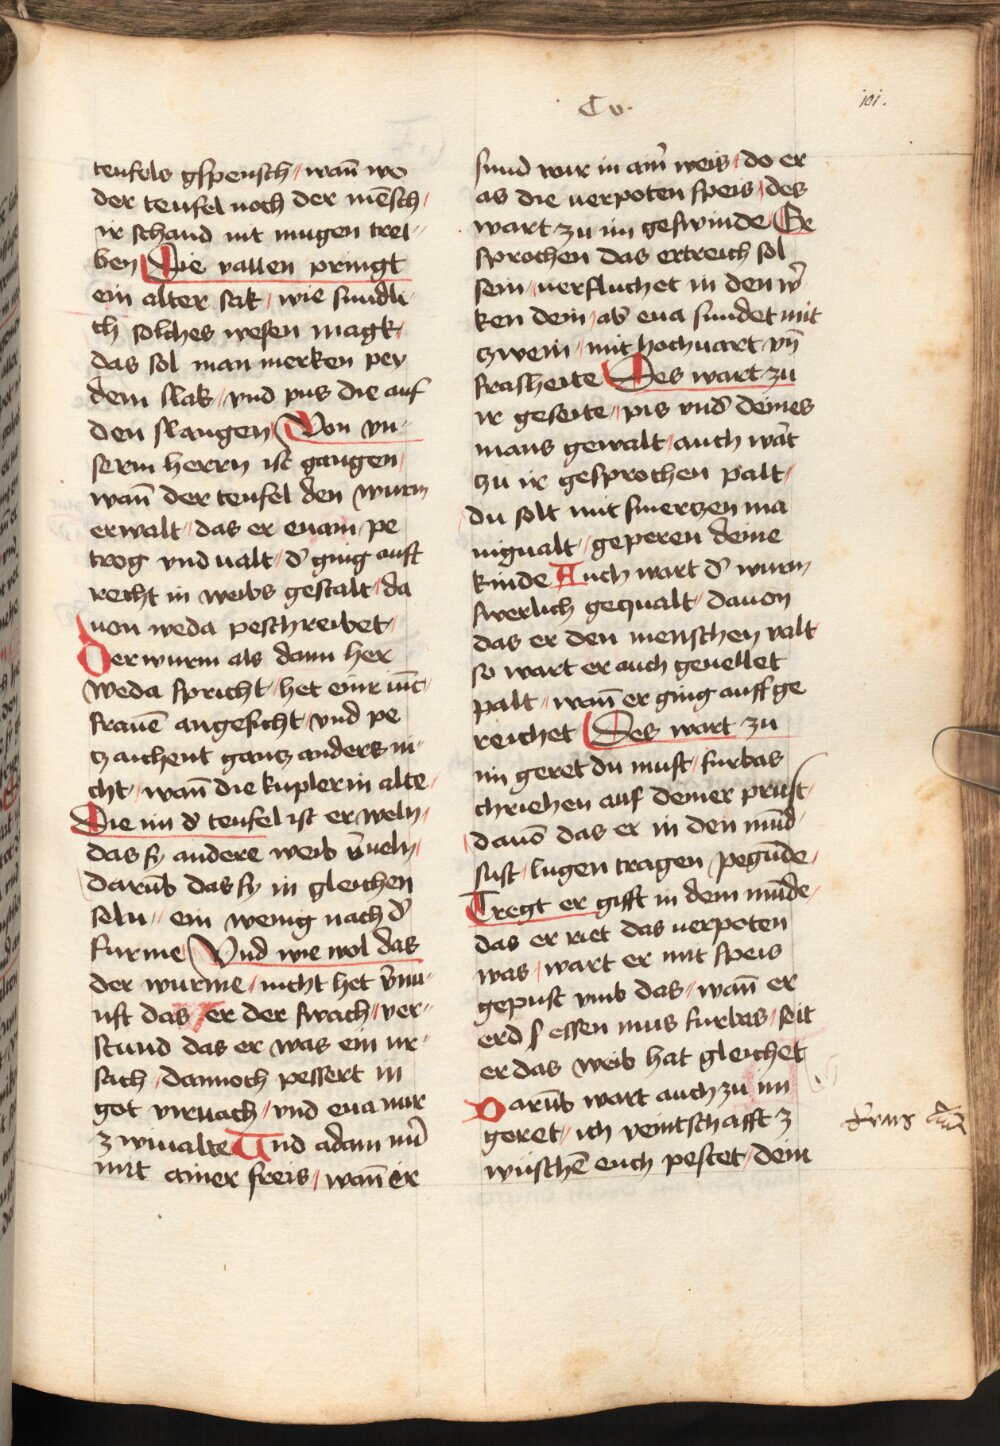 C v.
101.
teufels gspensch / wañ wo
der teufel noch der mẽsch /
ir schand nit mugen trei//
ben Die vallen pringt
ein alter sak / wie sundli
ch solches wesen magk /
das sol man merken pey
dem slak / vnd pus die auf
den slangen Von vn//
serm herrn ist gangen /
wañ der teufel den wurm
erwalt / das er euam / pe
trog vnd valt / d̉ ging auff
recht in weibs gestalt / da
uon weda peschreibet /
Der wurm als dann her
weda spricht / het einr iũc
frauẽ angesicht / vnd pe
zaichent gancz anders ni//
cht / wañ die kuplerin alte /
Die im d̉ teufel ist erweln /
das sy andere weib v̉ueln /
darũb das sy in gleichen
soln // ein wenig nach d̉
furme Vnd wie wol das
der wurme / nicht het v̉nu//
nft das / er der swach / ver//
stund das er was ein vr//
sach / dannoch pessert in
got viruach / vnd eua nur
zwiualte Und adam nur̉
mit ainer freis / wañ er
sund wir in aim̉ weis / do er
as die verpoten speis / des
wart zu im geswinde Ge
sprochen das ertreich sol
sein / verfluchet in den w̉
ken dein / ab̉ eua sundet mit
zwein / mit hochuart vñ
frasheite Des wart zu
ir geseite / pis vnd̉ deines
mans gewalt / auch wa̎t
zu ir gesprochen palt /
du solt mit smerczen ma
nigualt / geperen deine
kinde Auch wart d̉ wurm
swerlich gequalt / dauon
das er den menschen valt
so wart er auch geuellet
palt / wañ er ging auff ge
reichet Des wart zu
im geret du must / furbas
chriehen auf deiner prust /
dauõ das er in den mũd
sust / lugen tragen pegũde /
Tregt er gifft in dem mũde /
das er riet das verpoten
was / wart er mit speis
gepust vmb das / wañ er
erd essen mus furbas / seit
er das weib hat gleichet
Darũb wart auch zu im
geret / ich veintschafft z
wuschẽ euch pestet / dem